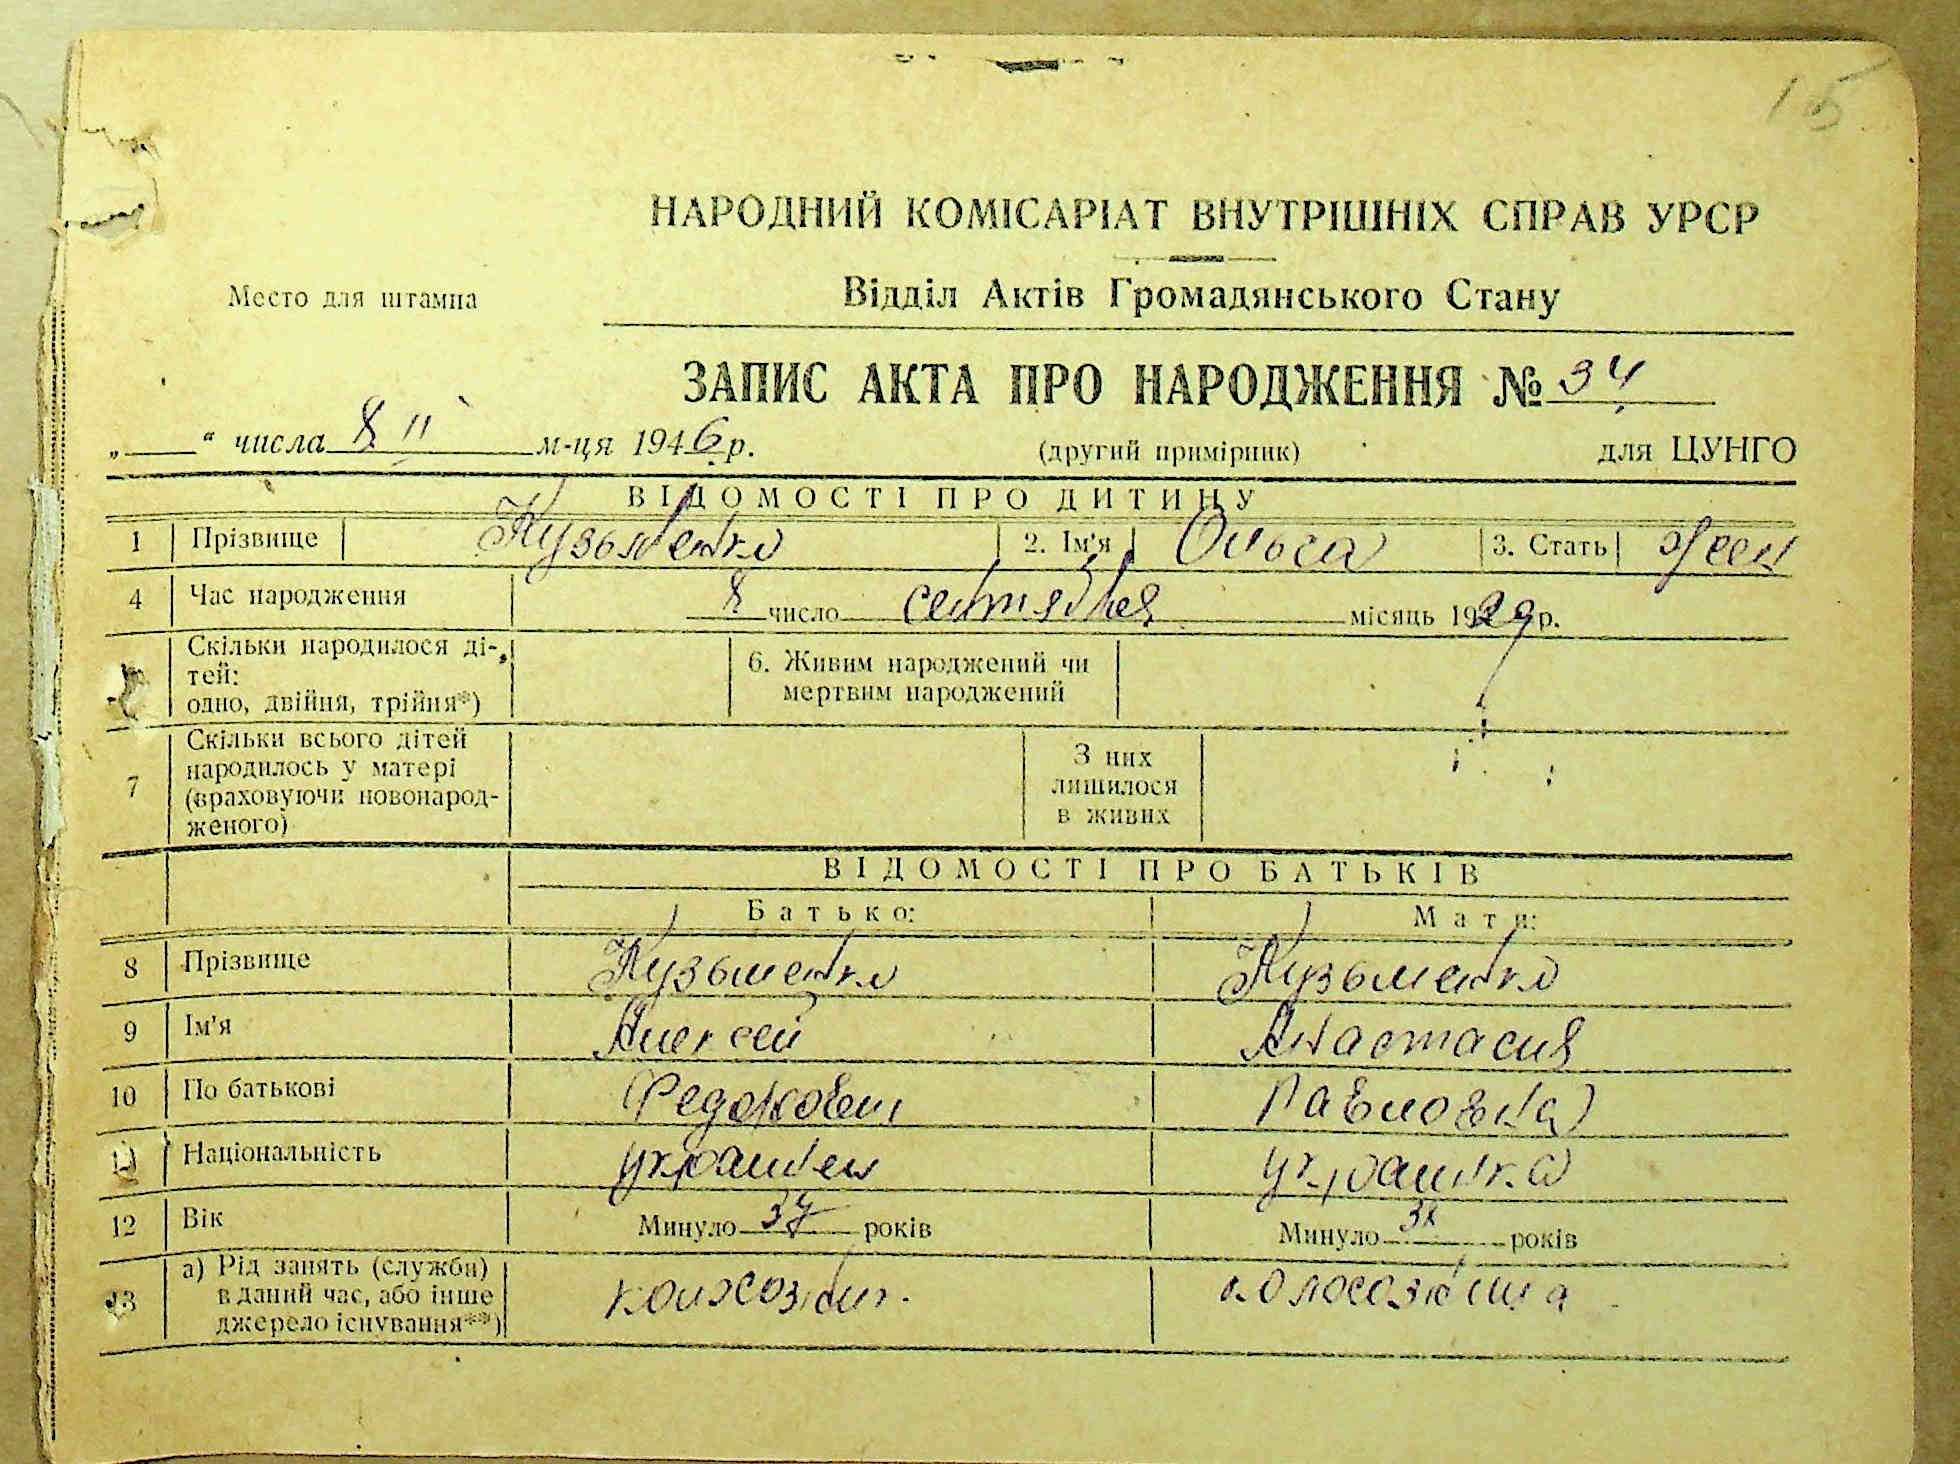 15
НАРОДНИЙ КОМІСАРІАТ ВНУТРІШНІХ СПРАВ УРСР
Место для штампа
Відділ Актів Громадянського Стану
ЗАПИС АКТА ПРО НАРОДЖЕННЯ № 34
„ “ числа 8 II м-ця 1946 р. (другий примірник) для ЦУНГО
ВІДОМОСТІ ПРО ДИТИНУ
1 Прізвище Кузьменко 2. Ім'я Ольга 3. Стать жен
4 Час народження 8 число сентября місяць 1929 р.
Скільки народилося ді-
тей:
одно, двійня, трійня*)
6. Живим народжений чи
мертвим народжений
7 Скільки всього дітей
народилось у матері
(враховуючи новонарод-
женого)
З них
лишилося
в живих
ВІДОМОСТІ ПРО БАТЬКІВ
Батько: Мати:
8 Прізвище Кузьменко Кузьменко
9 Ім'я Алексей Анастасия
10 По батькові Федорович Павловна
11 Національність украинец украинка
12 Вік Минуло 37 років Минуло 38 років
13 а) Рід занять (служби)
в даний час, або інше
джерело існування**)
колхозник. колхозница